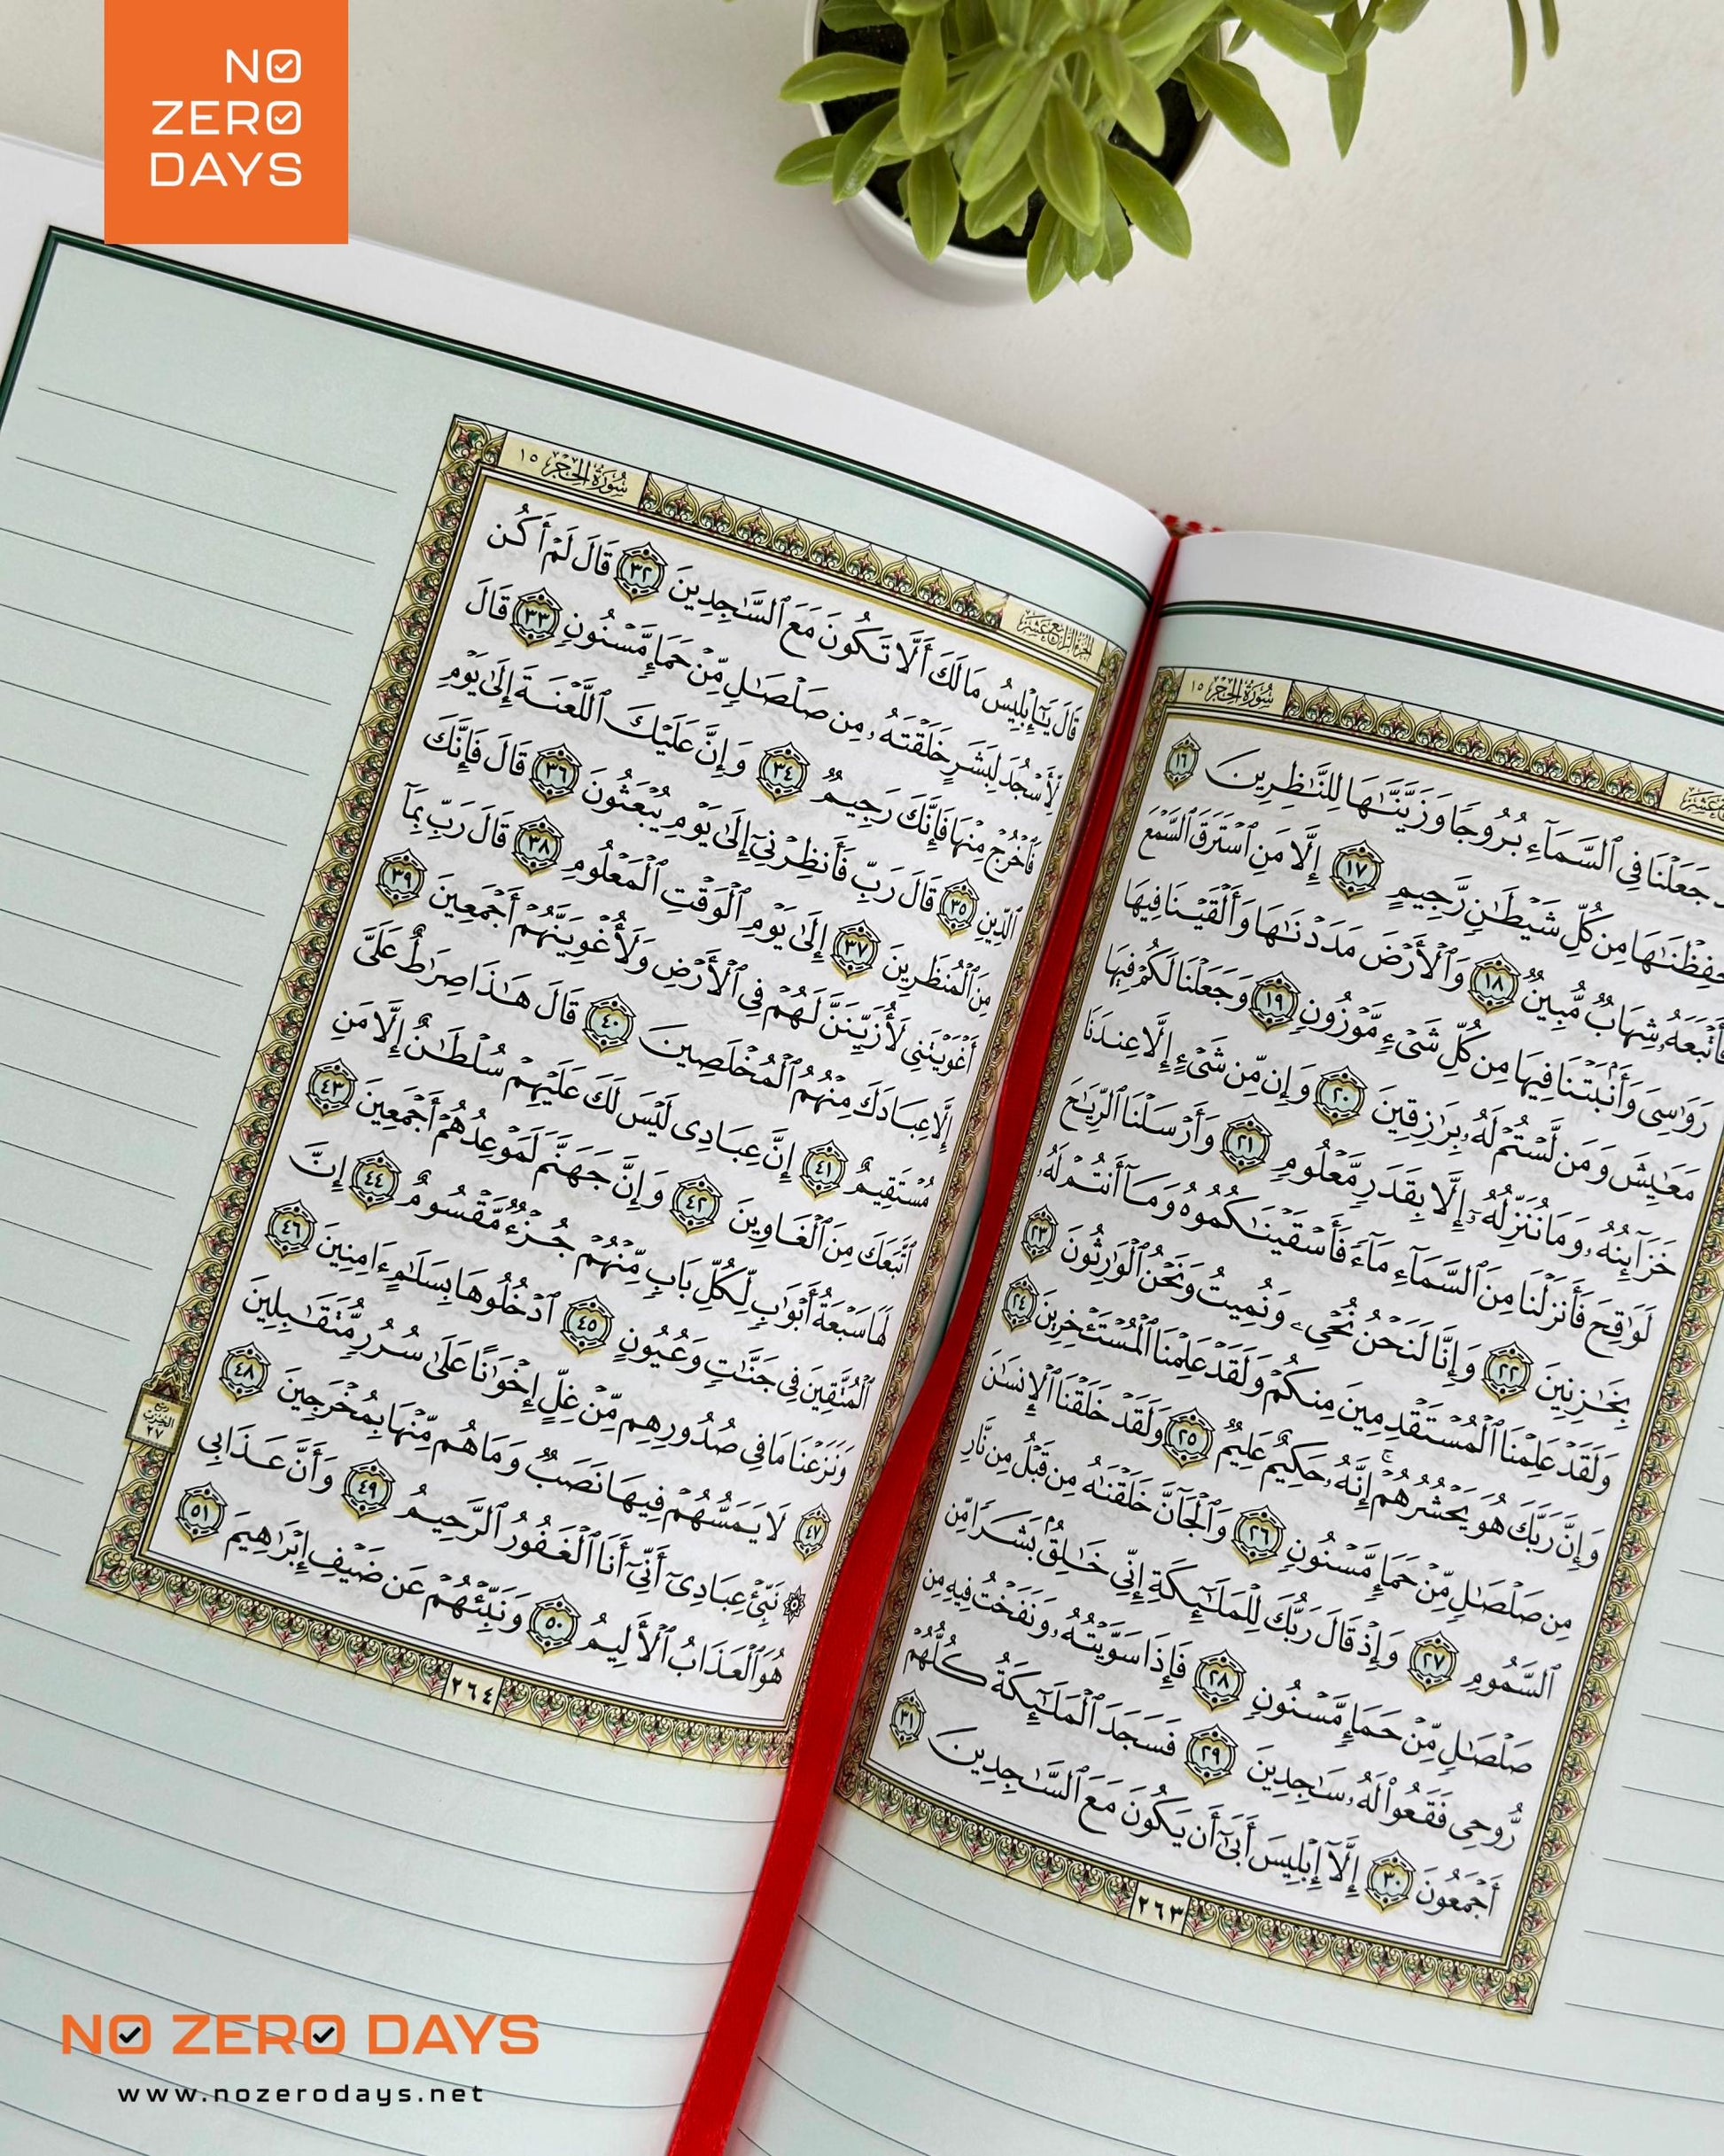 NO
ZERO
DAYS
سُورَةُ الحِجْرِ ١٥
جَعَلْنَا فِي ٱلسَّمَآءِ بُرُوجًا وَزَيَّنَّٰهَا لِلنَّٰظِرِينَ ١٦
حَفِظْنَٰهَا مِن كُلِّ شَيْطَٰنٍ رَّجِيمٍ ١٧ إِلَّا مَنِ ٱسْتَرَقَ ٱلسَّمْعَ
فَأَتْبَعَهُۥ شِهَابٌ مُّبِينٌ ١٨ وَٱلْأَرْضَ مَدَدْنَٰهَا وَأَلْقَيْنَا فِيهَا
رَوَٰسِيَ وَأَنۢبَتْنَا فِيهَا مِن كُلِّ شَيْءٍ مَّوْزُونٍ ١٩ وَجَعَلْنَا لَكُمْ فِيهَا
مَعَٰيِشَ وَمَن لَّسْتُمْ لَهُۥ بِرَٰزِقِينَ ٢٠ وَإِن مِّن شَيْءٍ إِلَّا عِندَنَا
خَزَآئِنُهُۥ وَمَا نُنَزِّلُهُۥٓ إِلَّا بِقَدَرٍ مَّعْلُومٍ ٢١ وَأَرْسَلْنَا ٱلرِّيَٰحَ
لَوَٰقِحَ فَأَنزَلْنَا مِنَ ٱلسَّمَآءِ مَآءً فَأَسْقَيْنَٰكُمُوهُ وَمَآ أَنتُمْ لَهُۥ
بِخَٰزِنِينَ ٢٢ وَإِنَّا لَنَحْنُ نُحْيِۦ وَنُمِيتُ وَنَحْنُ ٱلْوَٰرِثُونَ ٢٣
وَلَقَدْ عَلِمْنَا ٱلْمُسْتَقْدِمِينَ مِنكُمْ وَلَقَدْ عَلِمْنَا ٱلْمُسْتَـْٔخِرِينَ ٢٤
وَإِنَّ رَبَّكَ هُوَ يَحْشُرُهُمْ ۚ إِنَّهُۥ حَكِيمٌ عَلِيمٌ ٢٥ وَلَقَدْ خَلَقْنَا ٱلْإِنسَٰنَ
مِن صَلْصَٰلٍ مِّنْ حَمَإٍ مَّسْنُونٍ ٢٦ وَٱلْجَآنَّ خَلَقْنَٰهُ مِن قَبْلُ مِن نَّارِ
ٱلسَّمُومِ ٢٧ وَإِذْ قَالَ رَبُّكَ لِلْمَلَٰٓئِكَةِ إِنِّي خَٰلِقٌۢ بَشَرًا مِّن
صَلْصَٰلٍ مِّنْ حَمَإٍ مَّسْنُونٍ ٢٨ فَإِذَا سَوَّيْتُهُۥ وَنَفَخْتُ فِيهِ مِن
رُّوحِي فَقَعُوا۟ لَهُۥ سَٰجِدِينَ ٢٩ فَسَجَدَ ٱلْمَلَٰٓئِكَةُ كُلُّهُمْ
أَجْمَعُونَ ٣٠ إِلَّآ إِبْلِيسَ أَبَىٰٓ أَن يَكُونَ مَعَ ٱلسَّٰجِدِينَ ٣١
٢٦٣
الجُزْءُ الرَّابِعَ عَشَرَ
سُورَةُ الحِجْرِ ١٥
قَالَ يَٰٓإِبْلِيسُ مَا لَكَ أَلَّا تَكُونَ مَعَ ٱلسَّٰجِدِينَ ٣٢ قَالَ لَمْ أَكُن
لِّأَسْجُدَ لِبَشَرٍ خَلَقْتَهُۥ مِن صَلْصَٰلٍ مِّنْ حَمَإٍ مَّسْنُونٍ ٣٣ قَالَ
فَٱخْرُجْ مِنْهَا فَإِنَّكَ رَجِيمٌ ٣٤ وَإِنَّ عَلَيْكَ ٱللَّعْنَةَ إِلَىٰ يَوْمِ
ٱلدِّينِ ٣٥ قَالَ رَبِّ فَأَنظِرْنِيٓ إِلَىٰ يَوْمِ يُبْعَثُونَ ٣٦ قَالَ فَإِنَّكَ
مِنَ ٱلْمُنظَرِينَ ٣٧ إِلَىٰ يَوْمِ ٱلْوَقْتِ ٱلْمَعْلُومِ ٣٨ قَالَ رَبِّ بِمَآ
أَغْوَيْتَنِي لَأُزَيِّنَنَّ لَهُمْ فِي ٱلْأَرْضِ وَلَأُغْوِيَنَّهُمْ أَجْمَعِينَ ٣٩
إِلَّا عِبَادَكَ مِنْهُمُ ٱلْمُخْلَصِينَ ٤٠ قَالَ هَٰذَا صِرَٰطٌ عَلَيَّ
مُسْتَقِيمٌ ٤١ إِنَّ عِبَادِي لَيْسَ لَكَ عَلَيْهِمْ سُلْطَٰنٌ إِلَّا مَنِ
ٱتَّبَعَكَ مِنَ ٱلْغَاوِينَ ٤٢ وَإِنَّ جَهَنَّمَ لَمَوْعِدُهُمْ أَجْمَعِينَ ٤٣
لَهَا سَبْعَةُ أَبْوَٰبٍ لِّكُلِّ بَابٍ مِّنْهُمْ جُزْءٌ مَّقْسُومٌ ٤٤ إِنَّ
ٱلْمُتَّقِينَ فِي جَنَّٰتٍ وَعُيُونٍ ٤٥ ٱدْخُلُوهَا بِسَلَٰمٍ ءَامِنِينَ ٤٦
وَنَزَعْنَا مَا فِي صُدُورِهِم مِّنْ غِلٍّ إِخْوَٰنًا عَلَىٰ سُرُرٍ مُّتَقَٰبِلِينَ
٤٧ لَا يَمَسُّهُمْ فِيهَا نَصَبٌ وَمَا هُم مِّنْهَا بِمُخْرَجِينَ ٤٨
۞ نَبِّئْ عِبَادِيٓ أَنِّيٓ أَنَا ٱلْغَفُورُ ٱلرَّحِيمُ ٤٩ وَأَنَّ عَذَابِي
هُوَ ٱلْعَذَابُ ٱلْأَلِيمُ ٥٠ وَنَبِّئْهُمْ عَن ضَيْفِ إِبْرَٰهِيمَ ٥١
رُبْعُ
الحِزْبِ
٢٧
٢٦٤
NO ZERO DAYS
www.nozerodays.net